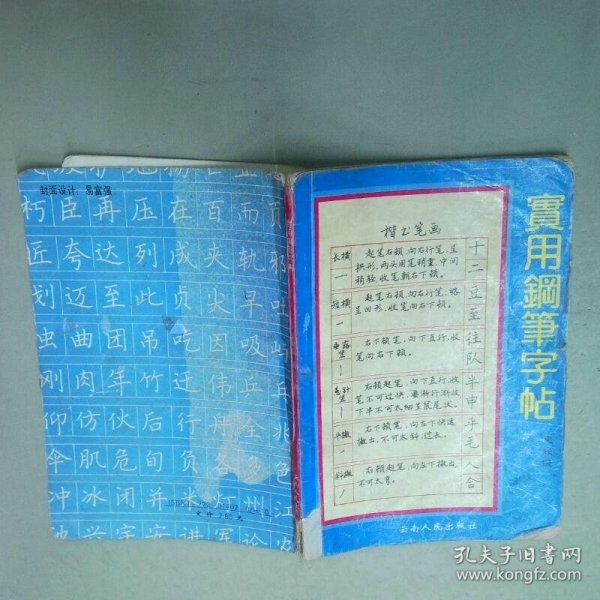 封面设计：易富强
朽臣再压在百而页
匠夸达列成夹轨邪
划迈至此贞尖早吐
虫曲团吊吃因吸屿
刚肉年竹迁伟乒兵
仰仿伙后行舟全兆
伞肌危旬负各多色
冲冰闭并米灯州江
地兴宇安进军论农
实用
實用鋼筆字帖
楷书笔画
长横
起笔右顿，向右行笔，呈
拱形，两头用笔稍重，中间
稍轻，收笔朝右下顿。
短横
起笔右顿，向右行笔，略
呈凹形，收笔向右下顿。
垂露竖
右下顿笔，向下直行，收
笔向右下顿。
悬针竖
右顿起笔，向下直行，收
笔不可过快，要渐行渐收
下半不可太细呈鼠尾状。
平撇
右下顿笔，向左下快速
撇出，不可太斜、过长。
斜撇
右顿起笔，向左下撇出，
不可太弯。
十二豆至往队半申平毛人合
云南人民出版社
孔夫子旧书网
www.kongfz.com